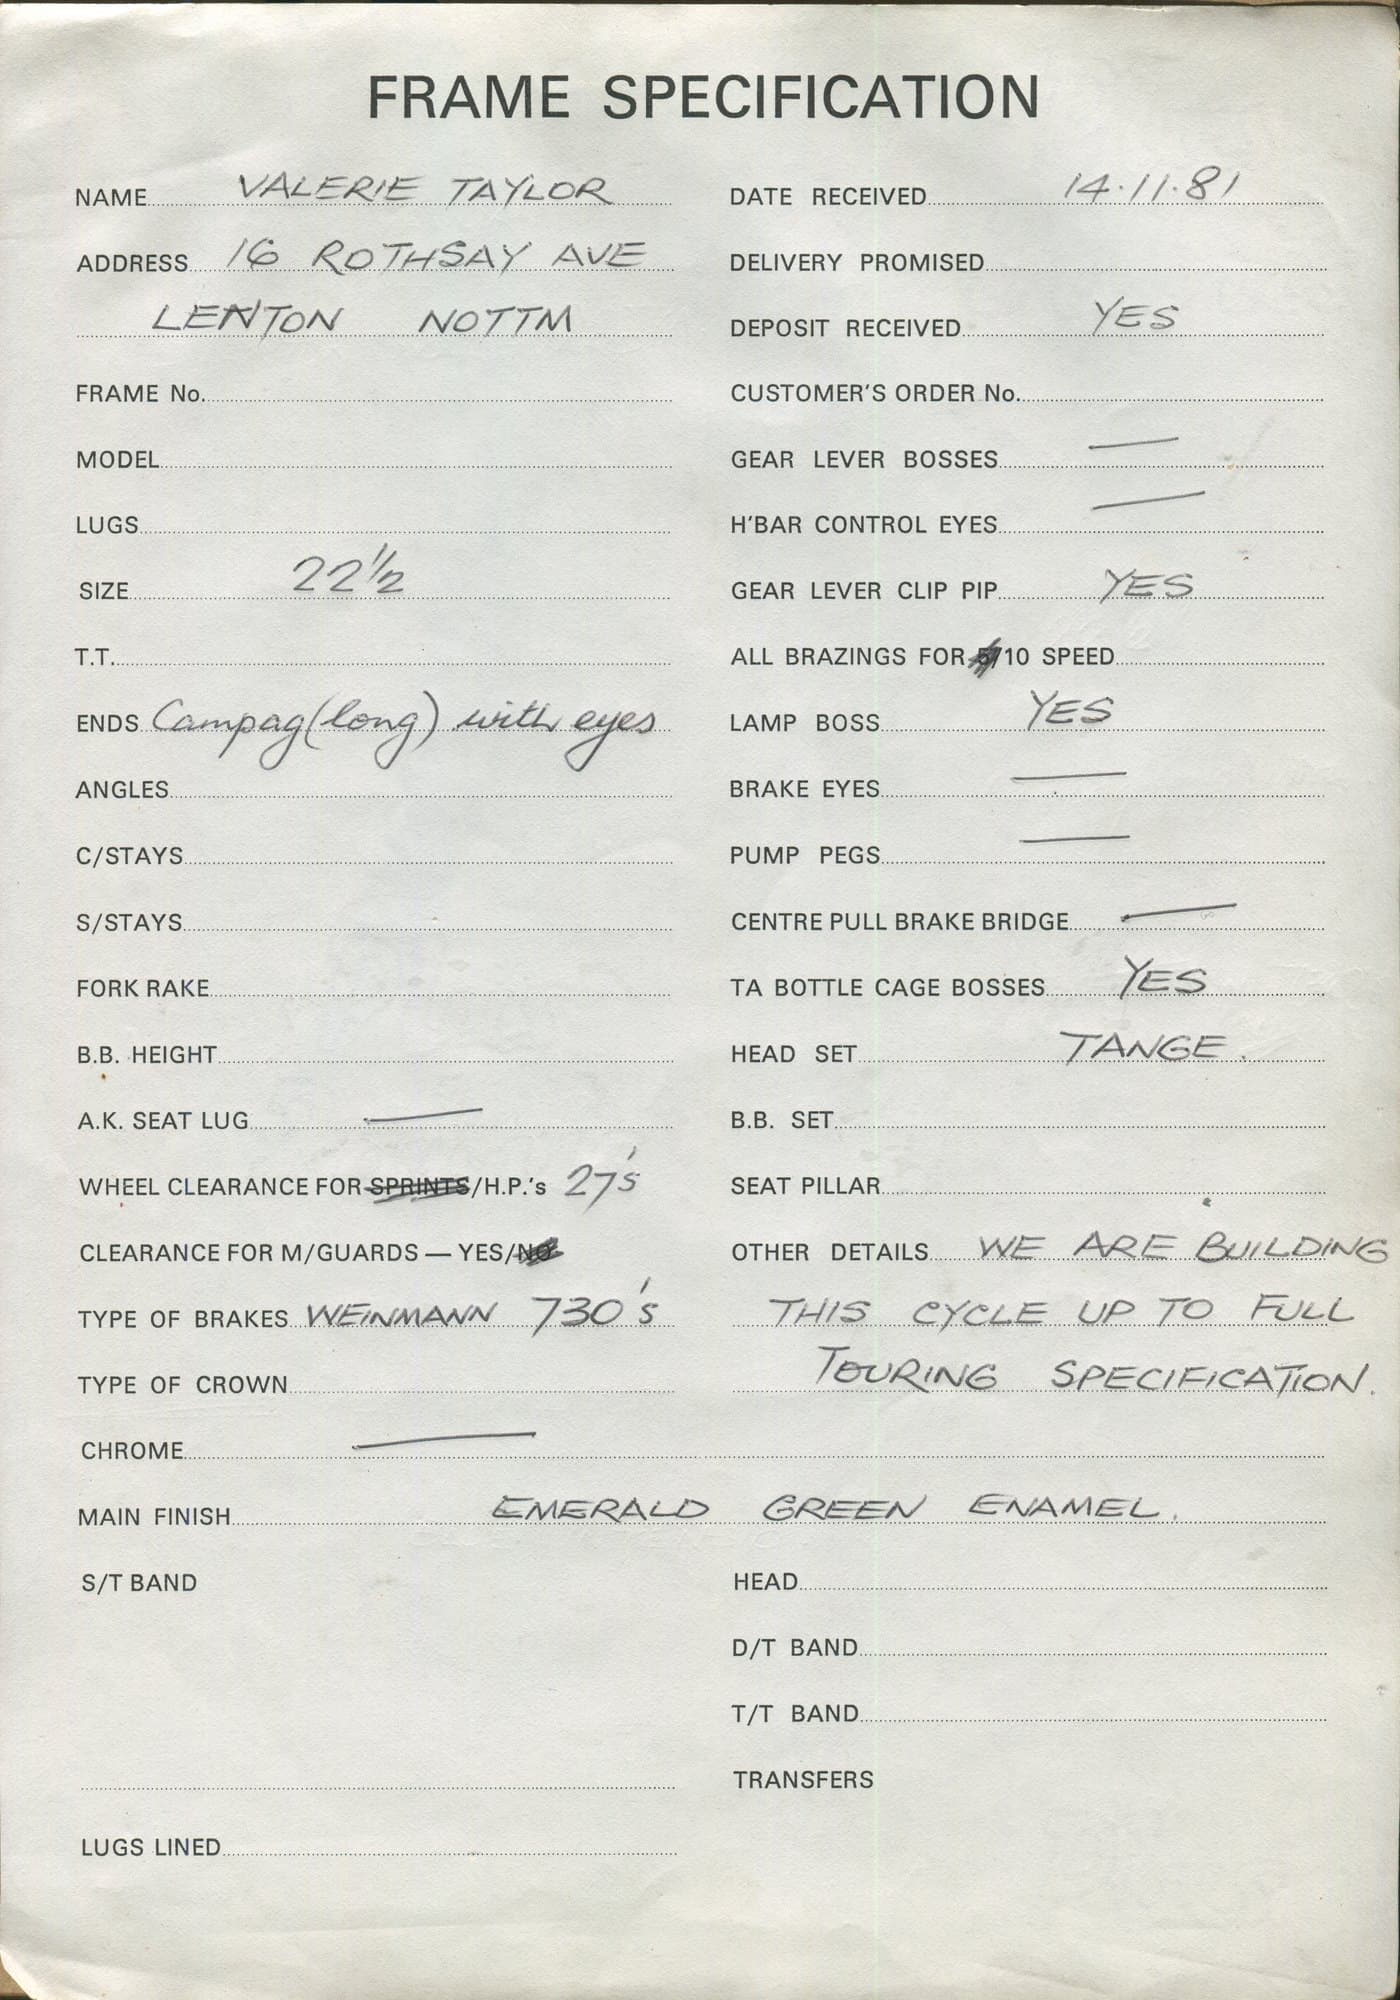 FRAME SPECIFICATION
NAME VALERIE TAYLOR
ADDRESS 16 ROTHSAY AVE
LENTON NOTTM
FRAME No.
MODEL
LUGS
SIZE 22 1/2
T.T.
ENDS Campag (long) with eyes
ANGLES
C/STAYS
S/STAYS
FORK RAKE
B.B. HEIGHT
A.K. SEAT LUG —
WHEEL CLEARANCE FOR SPRINTS/H.P.'s 27's
CLEARANCE FOR M/GUARDS — YES/NO
TYPE OF BRAKES WEINMANN 730's
TYPE OF CROWN
DATE RECEIVED 14.11.81
DELIVERY PROMISED
DEPOSIT RECEIVED YES
CUSTOMER'S ORDER No.
GEAR LEVER BOSSES —
H'BAR CONTROL EYES —
GEAR LEVER CLIP PIP YES
ALL BRAZINGS FOR 5/10 SPEED
LAMP BOSS YES
BRAKE EYES —
PUMP PEGS —
CENTRE PULL BRAKE BRIDGE —
TA BOTTLE CAGE BOSSES YES
HEAD SET TANGE.
B.B. SET
SEAT PILLAR
OTHER DETAILS WE ARE BUILDING
THIS CYCLE UP TO FULL
TOURING SPECIFICATION.
CHROME —
MAIN FINISH EMERALD GREEN ENAMEL.
S/T BAND
LUGS LINED
HEAD
D/T BAND
T/T BAND
TRANSFERS